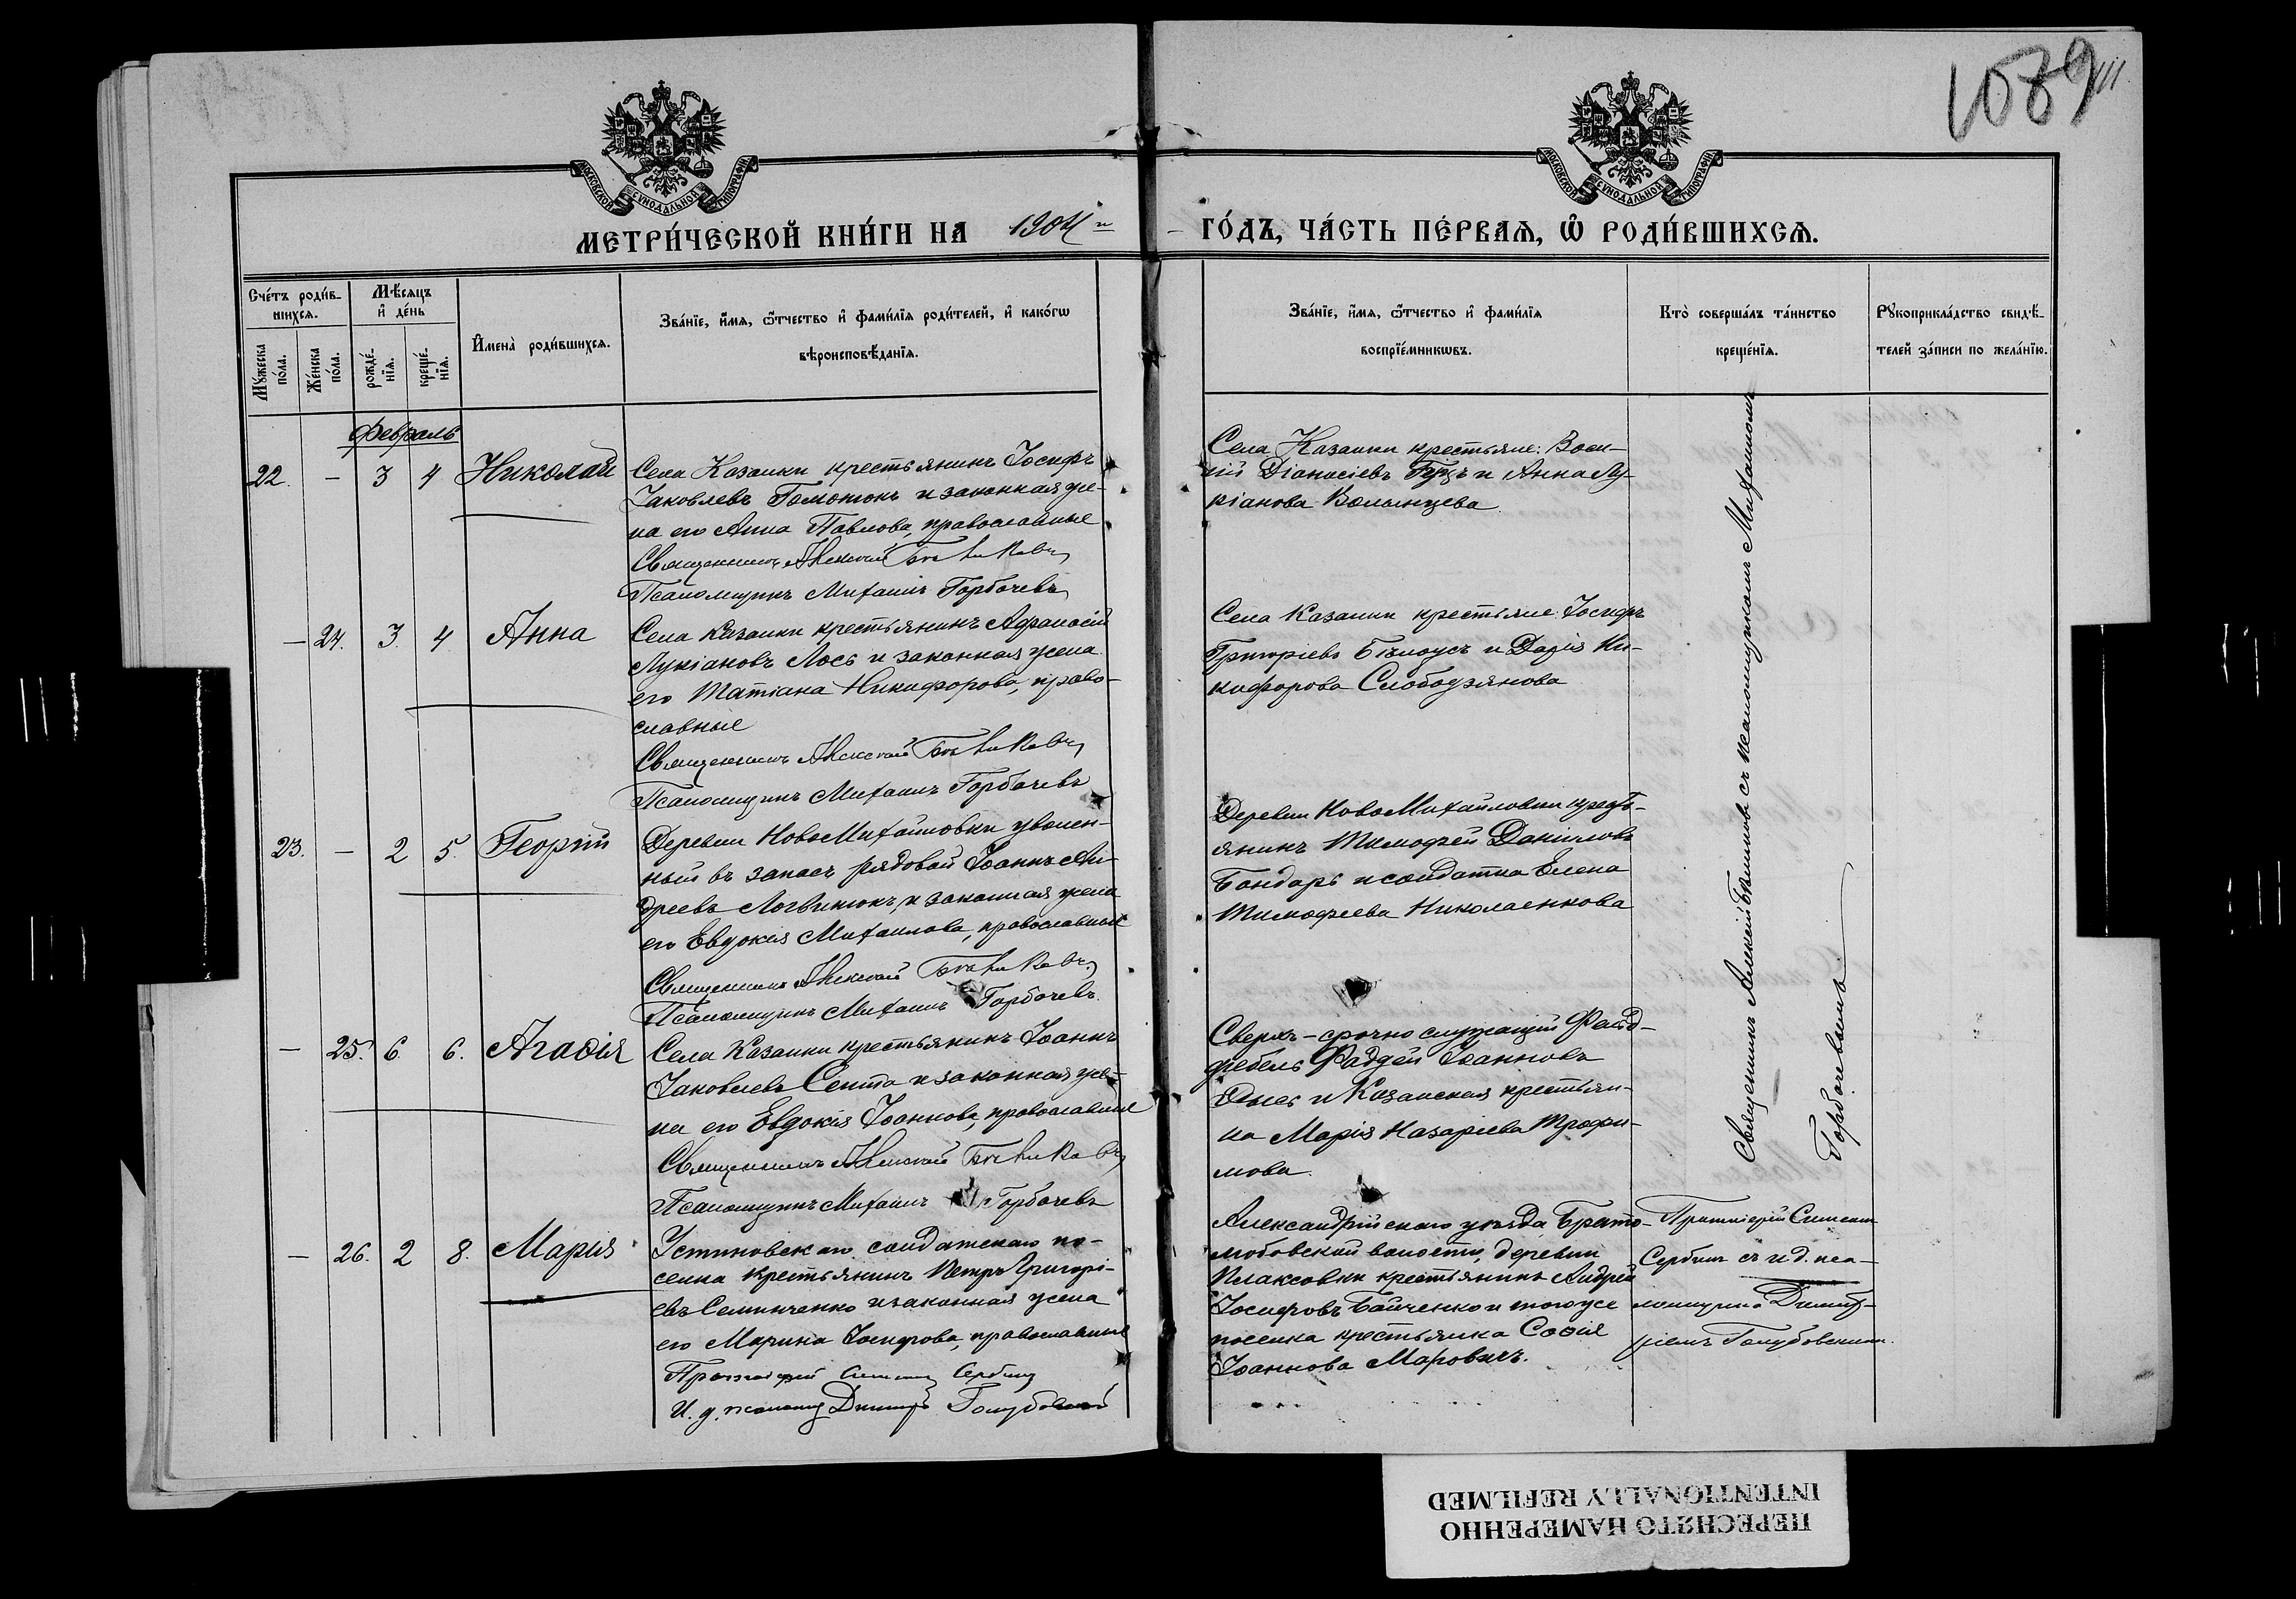 1089
МОСКОВСКОЙ СѴНОДАЛЬНОЙ ТИПОГРАФІИ
МОСКОВСКОЙ СѴНОДАЛЬНОЙ ТИПОГРАФІИ
МЕТРИ́ЧЕСКОЙ КНИ́ГИ НА 1904й
ГО́ДЪ, ЧА́СТЬ ПЕ́РВАѦ, Ѡ҆ РОДИ́ВШИХСѦ.
Сче́тъ роди́в-
шихсѧ.
Мѣ́сѧцъ
и҆ де́нь
Мꙋ́жеска
по́ла.
Же́нска
по́ла.
рожде́-
нїѧ.
креще́-
нїѧ.
И҆мена̀ роди́вшихсѧ.
Зва́нїе, и҆́мѧ, ѻ҆́тчество и҆ фами́лїѧ роди́телей, и҆ како́гѡ
вѣроисповѣ́данїѧ.
Зва́нїе, и҆́мѧ, ѻ҆́тчество и҆ фами́лїѧ
воспрїе́мникѡвъ.
Кто̀ соверша́лъ та́инство
креще́нїѧ.
Рꙋкоприкла́дство свидѣ́-
телей за́писи по жела́нїю.
Февраль
22. – 3 4 Николай
Села Казанки крестьянинъ Іосифъ
Іаковлевъ и законная же-
на его Анна Павлова, православные
Священникъ Алексѣй
Псаломщикъ Михаилъ Горбачевъ
Села Казанки крестьяне: Васи-
лій и Анна Лу-
кіанова Волынцева
– 24. 3. 4. Анна
Села Казанки крестьянинъ Афанасій
Лукіановъ Лось и законная жена
его Татіана Никифорова, право-
славные
Священникъ Алексѣй
Псаломщикъ Михаилъ Горбачевъ
Села Казанки крестьяне: Іосифъ
Григоріевъ Бѣлоусъ и Дарія Ни-
кифорова Слободзянова
23. – 2 5. Георгій
Деревни НовоМихайловки уволен-
ный въ запасъ рядовой Іоаннъ Ан-
дреевъ Логвинюкъ и законная жена
его Евдокія Михаилова, православные
Священникъ Алексѣй
Псаломщикъ Михаилъ Горбачевъ.
Деревни НовоМихайловки кресть-
янинъ Тимофей Даніиловъ
Бондарь и солдатка Елена
Тимофеева Николаенкова
– 25. 6. 6. Агаѳія
Села Казанки крестьянинъ Іоаннъ
Іаковлевъ и законная же-
на его Евдокія Іоаннова, православные
Священникъ Алексѣй
Псаломщикъ Михаилъ Горбачевъ
Сверхъ-срочно служащій Фельд-
фебель Фаддей Іоанновъ
и Казанская крестьян-
ка Марія Назаріева Трофи-
мова.
Священникъ Алексій съ псаломщикомъ Михаиломъ
Горбачевымъ
– 26. 2 8. Марія
Устиновскаго солдатскаго по-
селка крестьянинъ Петръ Григорі-
евъ Семинченко и законная жена
его Марина Іосифова, православные
Протоіерей Сербин
И. д. псаломщ Димитрій Голубовскій
Александрійскаго уѣзда, Брато-
любовской волости, деревни
Плаксовки крестьянинъ Андрей
Іосифовъ Байченко и тогоже
поселка крестьянка Софія
Іоаннова Маховичъ.
Протоіерей
съ и. д. пса-
ломщика Димит-
ріемъ Голубовскимъ.
ПЕРЕСНЯТО НАМЕРЕННО
INTENTIONALLY REFILMED